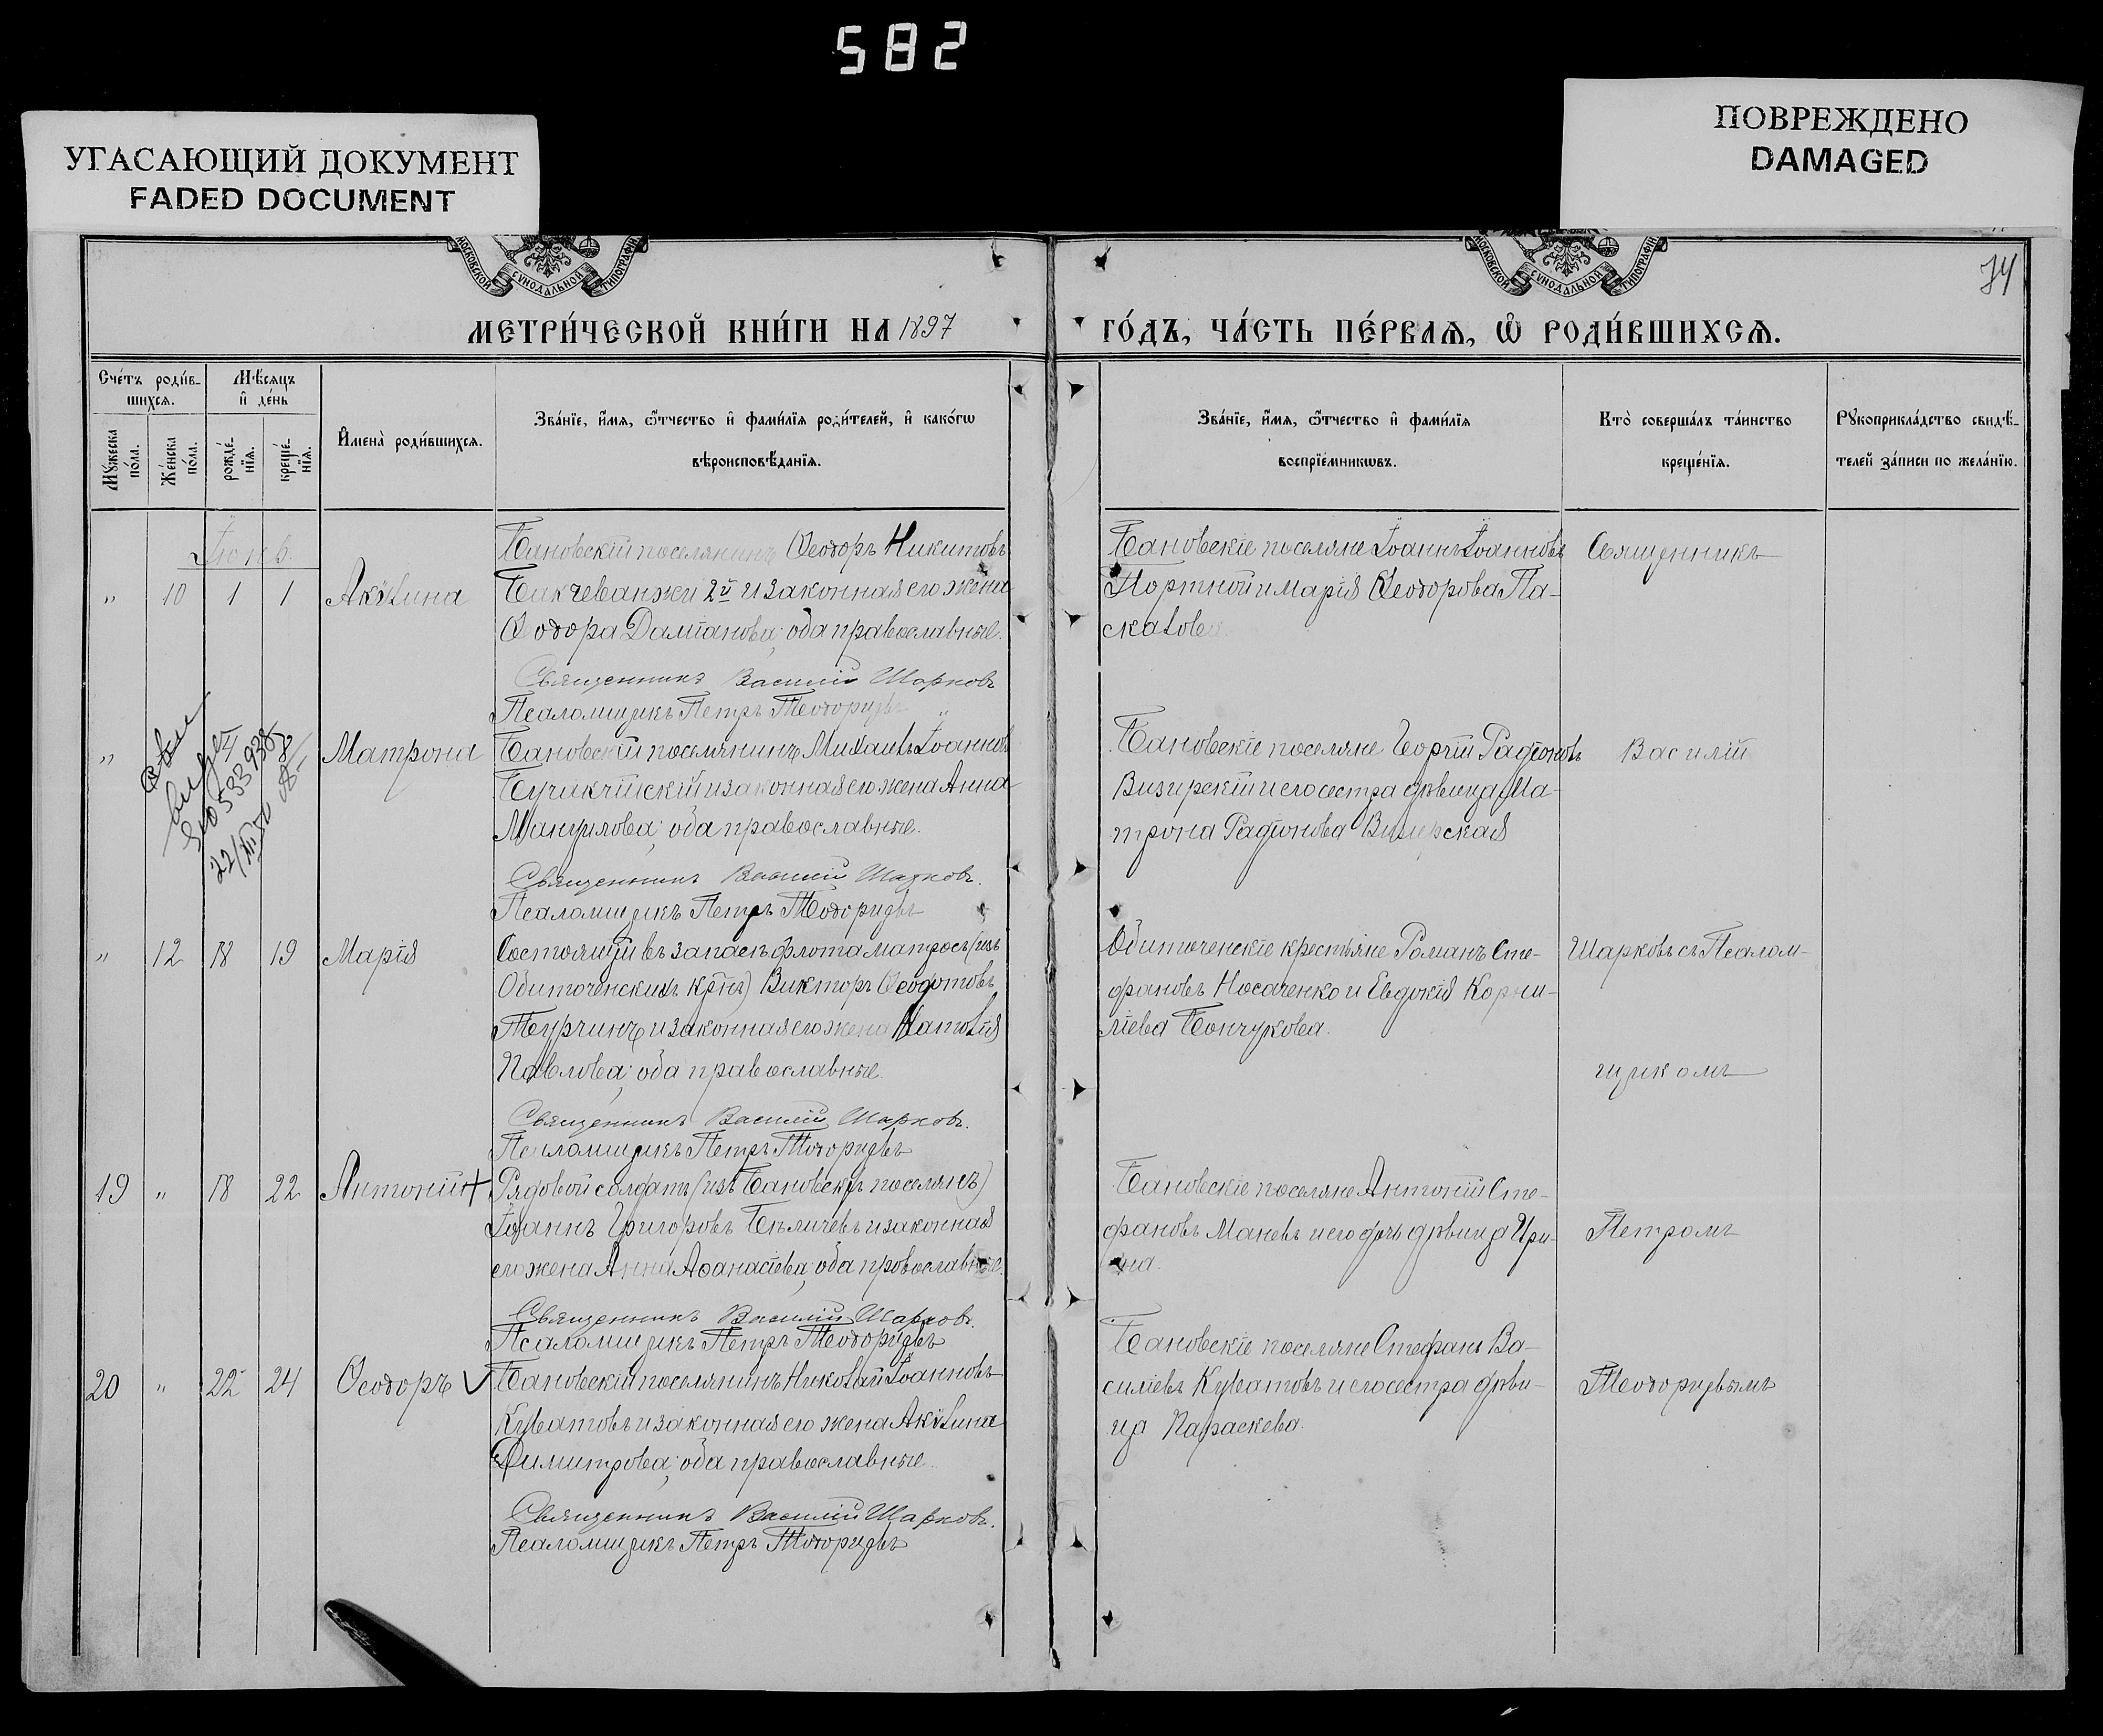 582
УГАСАЮЩИЙ ДОКУМЕНТ
FADED DOCUMENT
ПОВРЕЖДЕНО
DAMAGED
МОСКОВСКОЙ СѴНОДАЛЬНОЙ ТИПОГРАФІИ
МОСКОВСКОЙ СѴНОДАЛЬНОЙ ТИПОГРАФІИ
74
МЕТРИ́ЧЕСКОЙ КНИ́ГИ НА 1897
ГО́ДЪ, ЧА́СТЬ ПЕ́РВАѦ, Ѽ РОДИ́ВШИХСѦ.
Сче́тъ роди́в-
шихсѧ.
Мѣ́сѧцъ
и҆ де́нь
Мꙋ́жеска
по́ла.
Же́нска
по́ла.
рожде́-
нїѧ.
креще́-
нїѧ.
И҆мена̀ роди́вшихсѧ.
Зва́нїе, и҆́мѧ, ѻ҆́тчество и҆ фами́лїѧ роди́телей, и҆ како́гѡ
вѣроисповѣ́данїѧ.
Зва́нїе, и҆́мѧ, ѻ҆́тчество и҆ фами́лїѧ
воспрїе́мникѡвъ.
Кто̀ соверша́лъ та́инство
креще́нїѧ.
Рꙋкоприкла́дство свидѣ́-
телей за́писи по жела́нїю.
Іюнь.
" 10 1 1 Акилина
Бановскій поселянинъ Ѳеодоръ Никитовъ
2й и законная его жена
Ѳеодора Даміанова; оба православные.
Священникъ Василій Шарковъ
Псаломщикъ Петръ Теодоридъ
Бановскіе поселяне Іоаннъ Іоанновъ
Портной и Марія Ѳеодорова Па-
скалова
Священникъ
" Матрона
22/XII
Бановскій поселянинъ Михаилъ Іоанновъ
и законная его жена Анна
Мануилова; оба православные.
Священникъ Василій Шарковъ.
Псаломщикъ Петръ Теодоридъ
Бановскіе поселяне Георгій Радіоновъ
Визирскій и его сестра дѣвица Ма-
трона Радіонова Визирская
Василій
" 12 18 19 Марія
Состоящій въ запасѣ флота матросъ (изъ
Обиточенскихъ крнъ) Викторъ Ѳеодотовъ
Турчинъ и законная его жена Наталія
Павлова; оба православные.
Священникъ Василій Шарковъ.
Псаломщикъ Петръ Теодоридъ
Обиточенскіе крестьяне Романъ Сте-
фановъ Носаченко и Евдокія Корни-
ліева Бончукова.
Шарковъ съ Псалом-
щикомъ
19 " 18 22 Антоній +
Рядовой солдатъ (изъ Бановскихъ поселянъ)
Іоаннъ Григоровъ Бѣличевъ и законная
его жена Анна Аѳанасіева; оба православные.
Священникъ Василій Шарковъ.
Псаломщикъ Петръ Теодоридъ
Бановскіе поселяне Антоній Сте-
фановъ Маневъ и его дчь дѣвица Ири-
на.
Петромъ
20 " 22 24 Ѳеодоръ ✓
Бановскій поселянинъ Николай Іоанновъ
Куватовъ и законная его жена Акилина
Димитрова; оба православные.
Священникъ Василій Шарковъ.
Псаломщикъ Петръ Теодоридъ
Бановскіе поселяне Стефанъ Ва-
силіевъ Куватовъ и его сестра дѣви-
ца Параскева.
Теодоридымъ